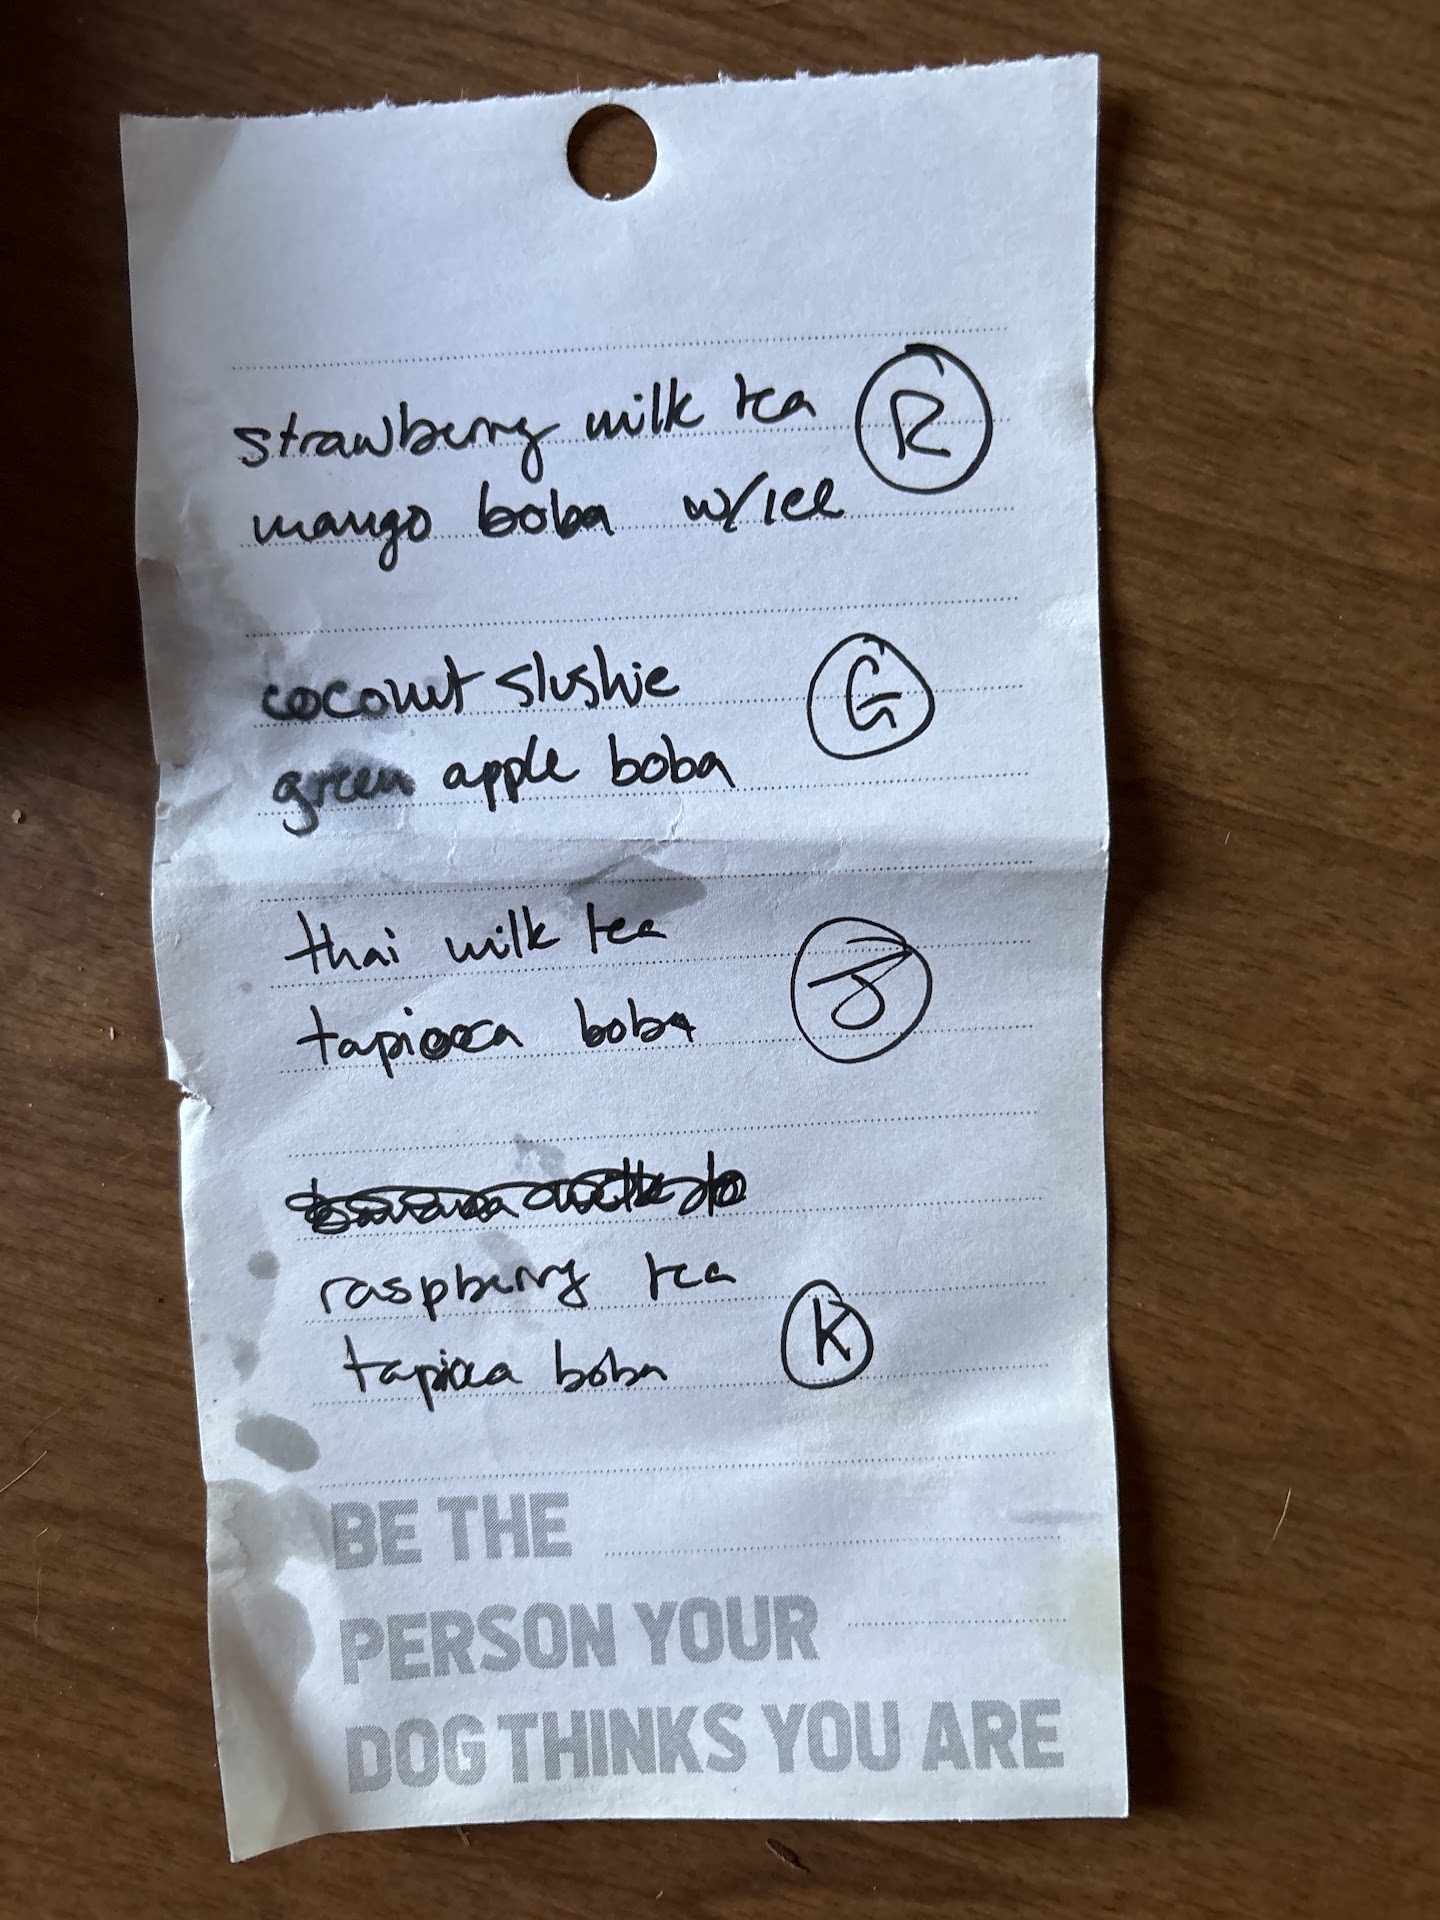 strawberry milk tea R
mango boba w/ice
coconut slushie G
green apple boba
thai milk tea J
tapioca boba
banana milk
raspberry tea
tapioca boba K
BE THE
PERSON YOUR
DOG THINKS YOU ARE